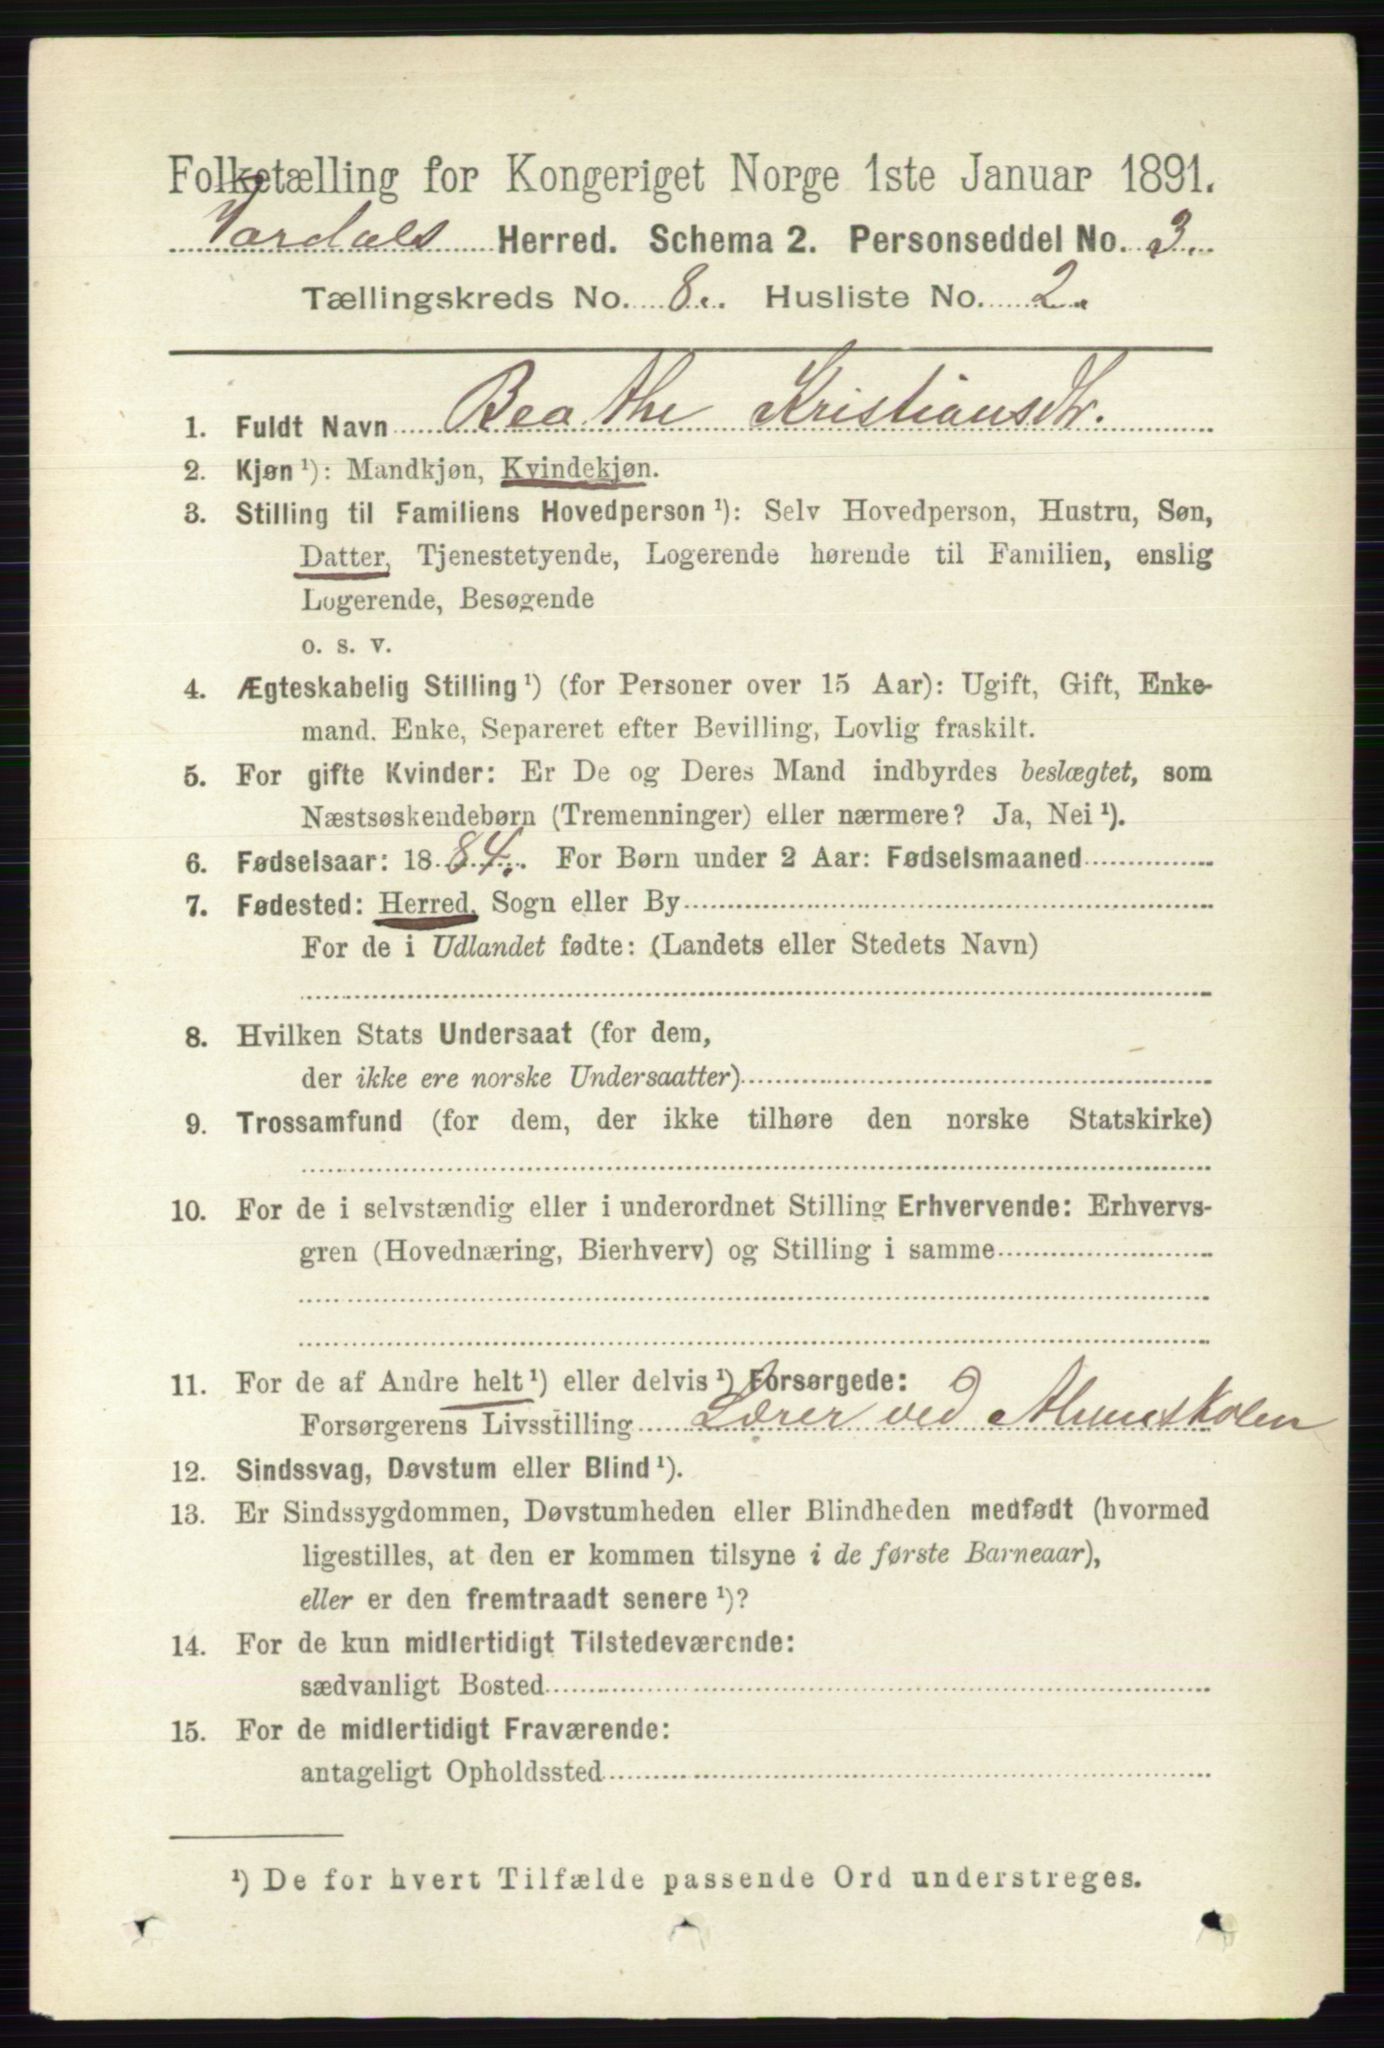 Folketælling for Kongeriget Norge 1ste Januar 1891.
Vardals Herred. Schema 2. Personseddel No. 3.
Tællingskreds No. 8. Husliste No. 2.
1. Fuldt Navn Beathe Kristiansdtr.
2. Kjøn ¹): Mandkjøn, Kvindekjøn.
3. Stilling til Familiens Hovedperson ¹): Selv Hovedperson, Hustru, Søn,
Datter, Tjenestetyende, Logerende hørende til Familien, enslig
Logerende, Besøgende
o. s. v.
4. Ægteskabelig Stilling ¹) (for Personer over 15 Aar): Ugift, Gift, Enke-
mand, Enke, Separeret efter Bevilling, Lovlig fraskilt.
5. For gifte Kvinder: Er De og Deres Mand indbyrdes beslægtet, som
Næstsøskendebørn (Tremenninger) eller nærmere? Ja, Nei ¹).
6. Fødselsaar: 1884. For Børn under 2 Aar: Fødselsmaaned
7. Fødested: Herred, Sogn eller By
For de i Udlandet fødte: (Landets eller Stedets Navn)
8. Hvilken Stats Undersaat (for dem,
der ikke ere norske Undersaatter)
9. Trossamfund (for dem, der ikke tilhøre den norske Statskirke)
10. For de i selvstændig eller i underordnet Stilling Erhvervende: Erhvervs-
gren (Hovednæring, Bierhverv) og Stilling i samme
11. For de af Andre helt ¹) eller delvis ¹) Forsørgede:
Forsørgerens Livsstilling Lærer ved Almueskolen
12. Sindssvag, Døvstum eller Blind ¹).
13. Er Sindssygdommen, Døvstumheden eller Blindheden medfødt (hvormed
ligestilles, at den er kommen tilsyne i de første Barneaar),
eller er den fremtraadt senere ¹)?
14. For de kun midlertidigt Tilstedeværende:
sædvanligt Bosted
15. For de midlertidigt Fraværende:
antageligt Opholdssted
¹) De for hvert Tilfælde passende Ord understreges.